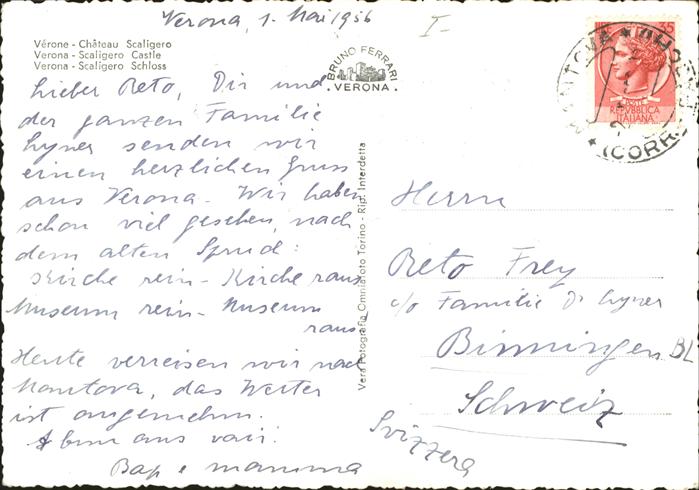 Verona, 1. Mai 1956
I-
Vérone - Château Scaligero
Verona - Scaligero Castle
Verona - Scaligero Schloss
BRUNO FERRARI
· VERONA ·
35
POSTE
REPVBBLICA
ITALIANA
MANTOVA
(CORR.
Lieber Reto, Dir und
der ganzen Familie
senden wir
einen herzlichen Gruss
aus Verona. Wir haben
schon viel gesehen, nach
dem alten Spruch:
Kirche rein - Kirche raus
Museum rein - Museum
raus
Heute verreisen wir nach
Mantova, das Wetter
ist angenehm.
Bap e mamma
Vera Fotografia Omniafoto Torino - Rip. Interdetta
Herrn
Reto Frey
c/o Familie Dr
Binningen BL
Schweiz
Svizzera